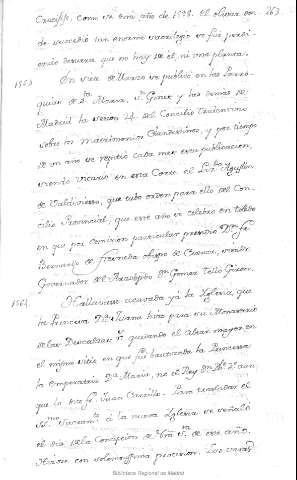 263
Crucifixo, como va en el año de 1538. el olivar don-
de sucedio tan enorme sacrilegio se fue perdi-
endo de suerte que no hay de el, ni una planta.
1563 En siete de Marzo se publicó en las Parro-
quias de S.ta Maria, S.n Gines y las demas de
Madrid la sesion 24. del Concilio Tridentino
sobre los matrimonios Clandestinos, y por tiempo
de un año se repitio cada mes esta publicacion,
siendo vicario en esta Corte el Agustin
de Valdivieso, que tubo orden para ello del Con-
cilio Provincial, que este año se celebro en toledo
en que por comision particular presidio D.n fr.
Bernardo de Fresneda obispo de Cuenca, siendo
Governador del Arzobispo D.n Gomez Tello Giron.
1564 Hallavase acavada ya la Yglesia, que
la Princesa D.a Juana hizo para su Monasterio
de las Descalzas R.s quedando el altar mayor en
el mismo sitio en que fue bautizada la Princesa
la emperatriz D.a Maria, no el Rey D.n Ph.e 2.o aun
que lo dice fr. Juan Carrillo. Para trasladar el
SS.mo Sacram.to á la nueva Yglesia se señaló
el dia de la Concepcion de Ntra S.ra de este año.
Hizose con solemnissima procesion. Los
Biblioteca Regional de Madrid